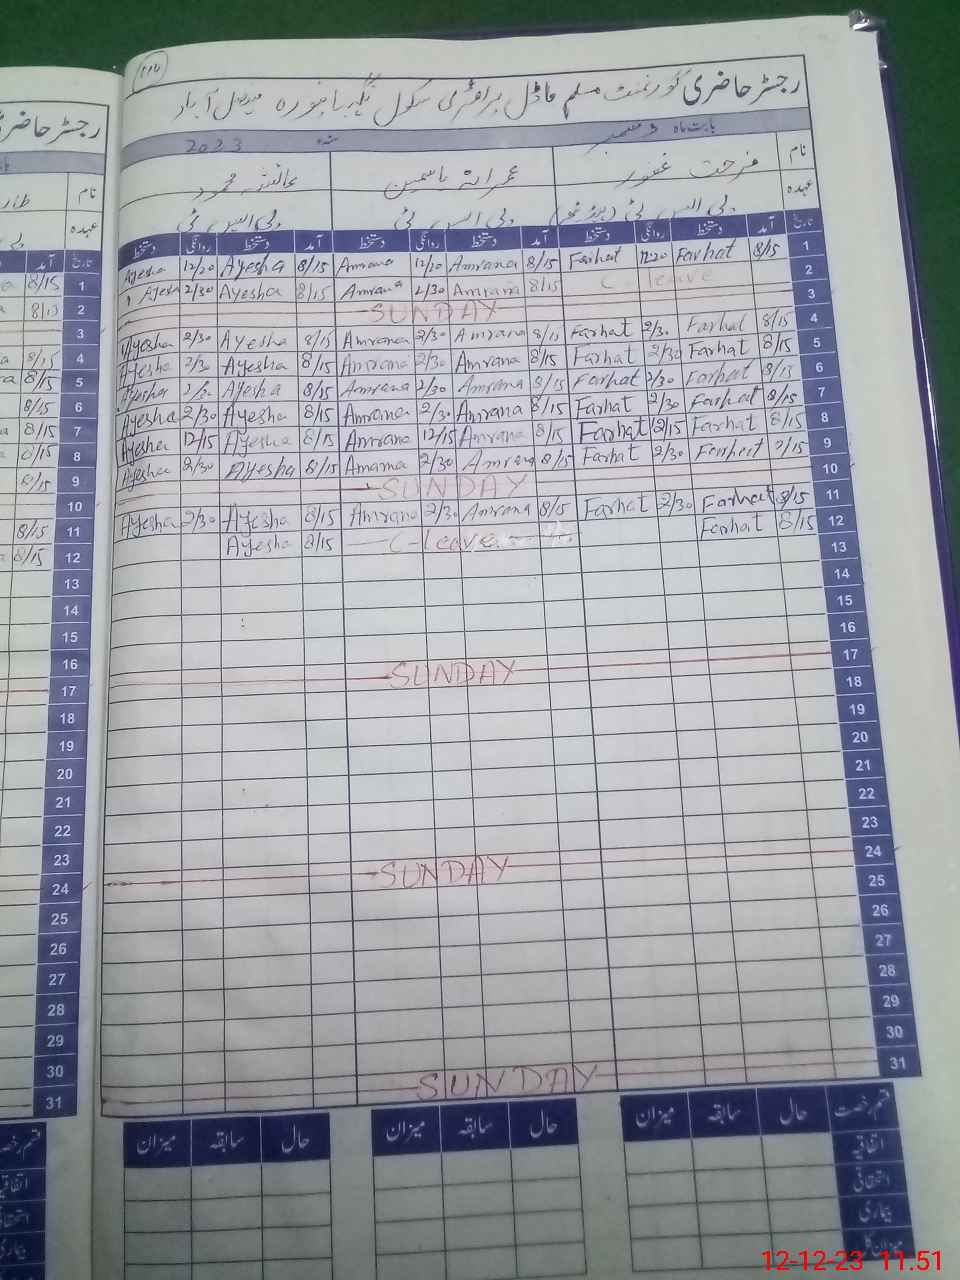 116
رجسٹر حاضری گورنمنٹ مسلم ماڈل پرائمری سکول نگہبانپورہ فیصل آباد
بابت ماہ دسمبر سنہ 2023
نام فرحت غفور عمرانہ یاسمین عائشہ محمود
عہدہ پی ایس ٹی پی ایس ٹی پی ایس ٹی
تاریخ آمد دستخط روانگی دستخط آمد دستخط روانگی دستخط آمد دستخط روانگی دستخط
Ayesha 12/20 Ayesha 8/15 Amrana 12/20 Amrana 8/15 Farhat 12:20 Farhat 8/15 1
Ayesha 2/30 Ayesha 8/15 Amrana 2/30 Amrana 8/15 C leave 2
SUNDAY 3
Ayesha 2/30 Ayesha 8/15 Amrana 2/30 Amrana 8/15 Farhat 2/30 Farhat 8/15 4
Ayesha 2/30 Ayesha 8/15 Amrana 2/30 Amrana 8/15 Farhat 2/30 Farhat 8/15 5
Ayesha 2/30 Ayesha 8/15 Amrana 2/30 Amrana 8/15 Farhat 2/30 Farhat 8/15 6
Ayesha 2/30 Ayesha 8/15 Amrana 2/30 Amrana 8/15 Farhat 2/30 Farhat 8/15 7
Ayesha 12/15 Ayesha 8/15 Amrana 12/15 Amrana 8/15 Farhat 12/15 Farhat 8/15 8
Ayesha 2/30 Ayesha 8/15 Amrana 2/30 Amrana 8/15 Farhat 2/30 Farhat 8/15 9
SUNDAY 10
Ayesha 2/30 Ayesha 8/15 Amrana 2/30 Amrana 8/15 Farhat 2/30 Farhat 8/15 11
Ayesha 8/15 C-leave Farhat 8/15 12
13
14
15
16
SUNDAY 17
18
19
20
21
22
23
SUNDAY 24
25
26
27
28
29
30
SUNDAY 31
قسم رخصت حال سابقہ میزان حال سابقہ میزان حال سابقہ میزان
اتفاقیہ
استحقاقی
بیماری
میزان کل
رجسٹر حاضری
نام
عہدہ
تاریخ آمد
8/15 1
2
3
8/15 4
8/15 5
8/15 6
8/15 7
8/15 8
8/15 9
10
8/15 11
8/15 12
13
14
15
16
17
18
19
20
21
22
23
24
25
26
27
28
29
30
31
12-12-23 11.51